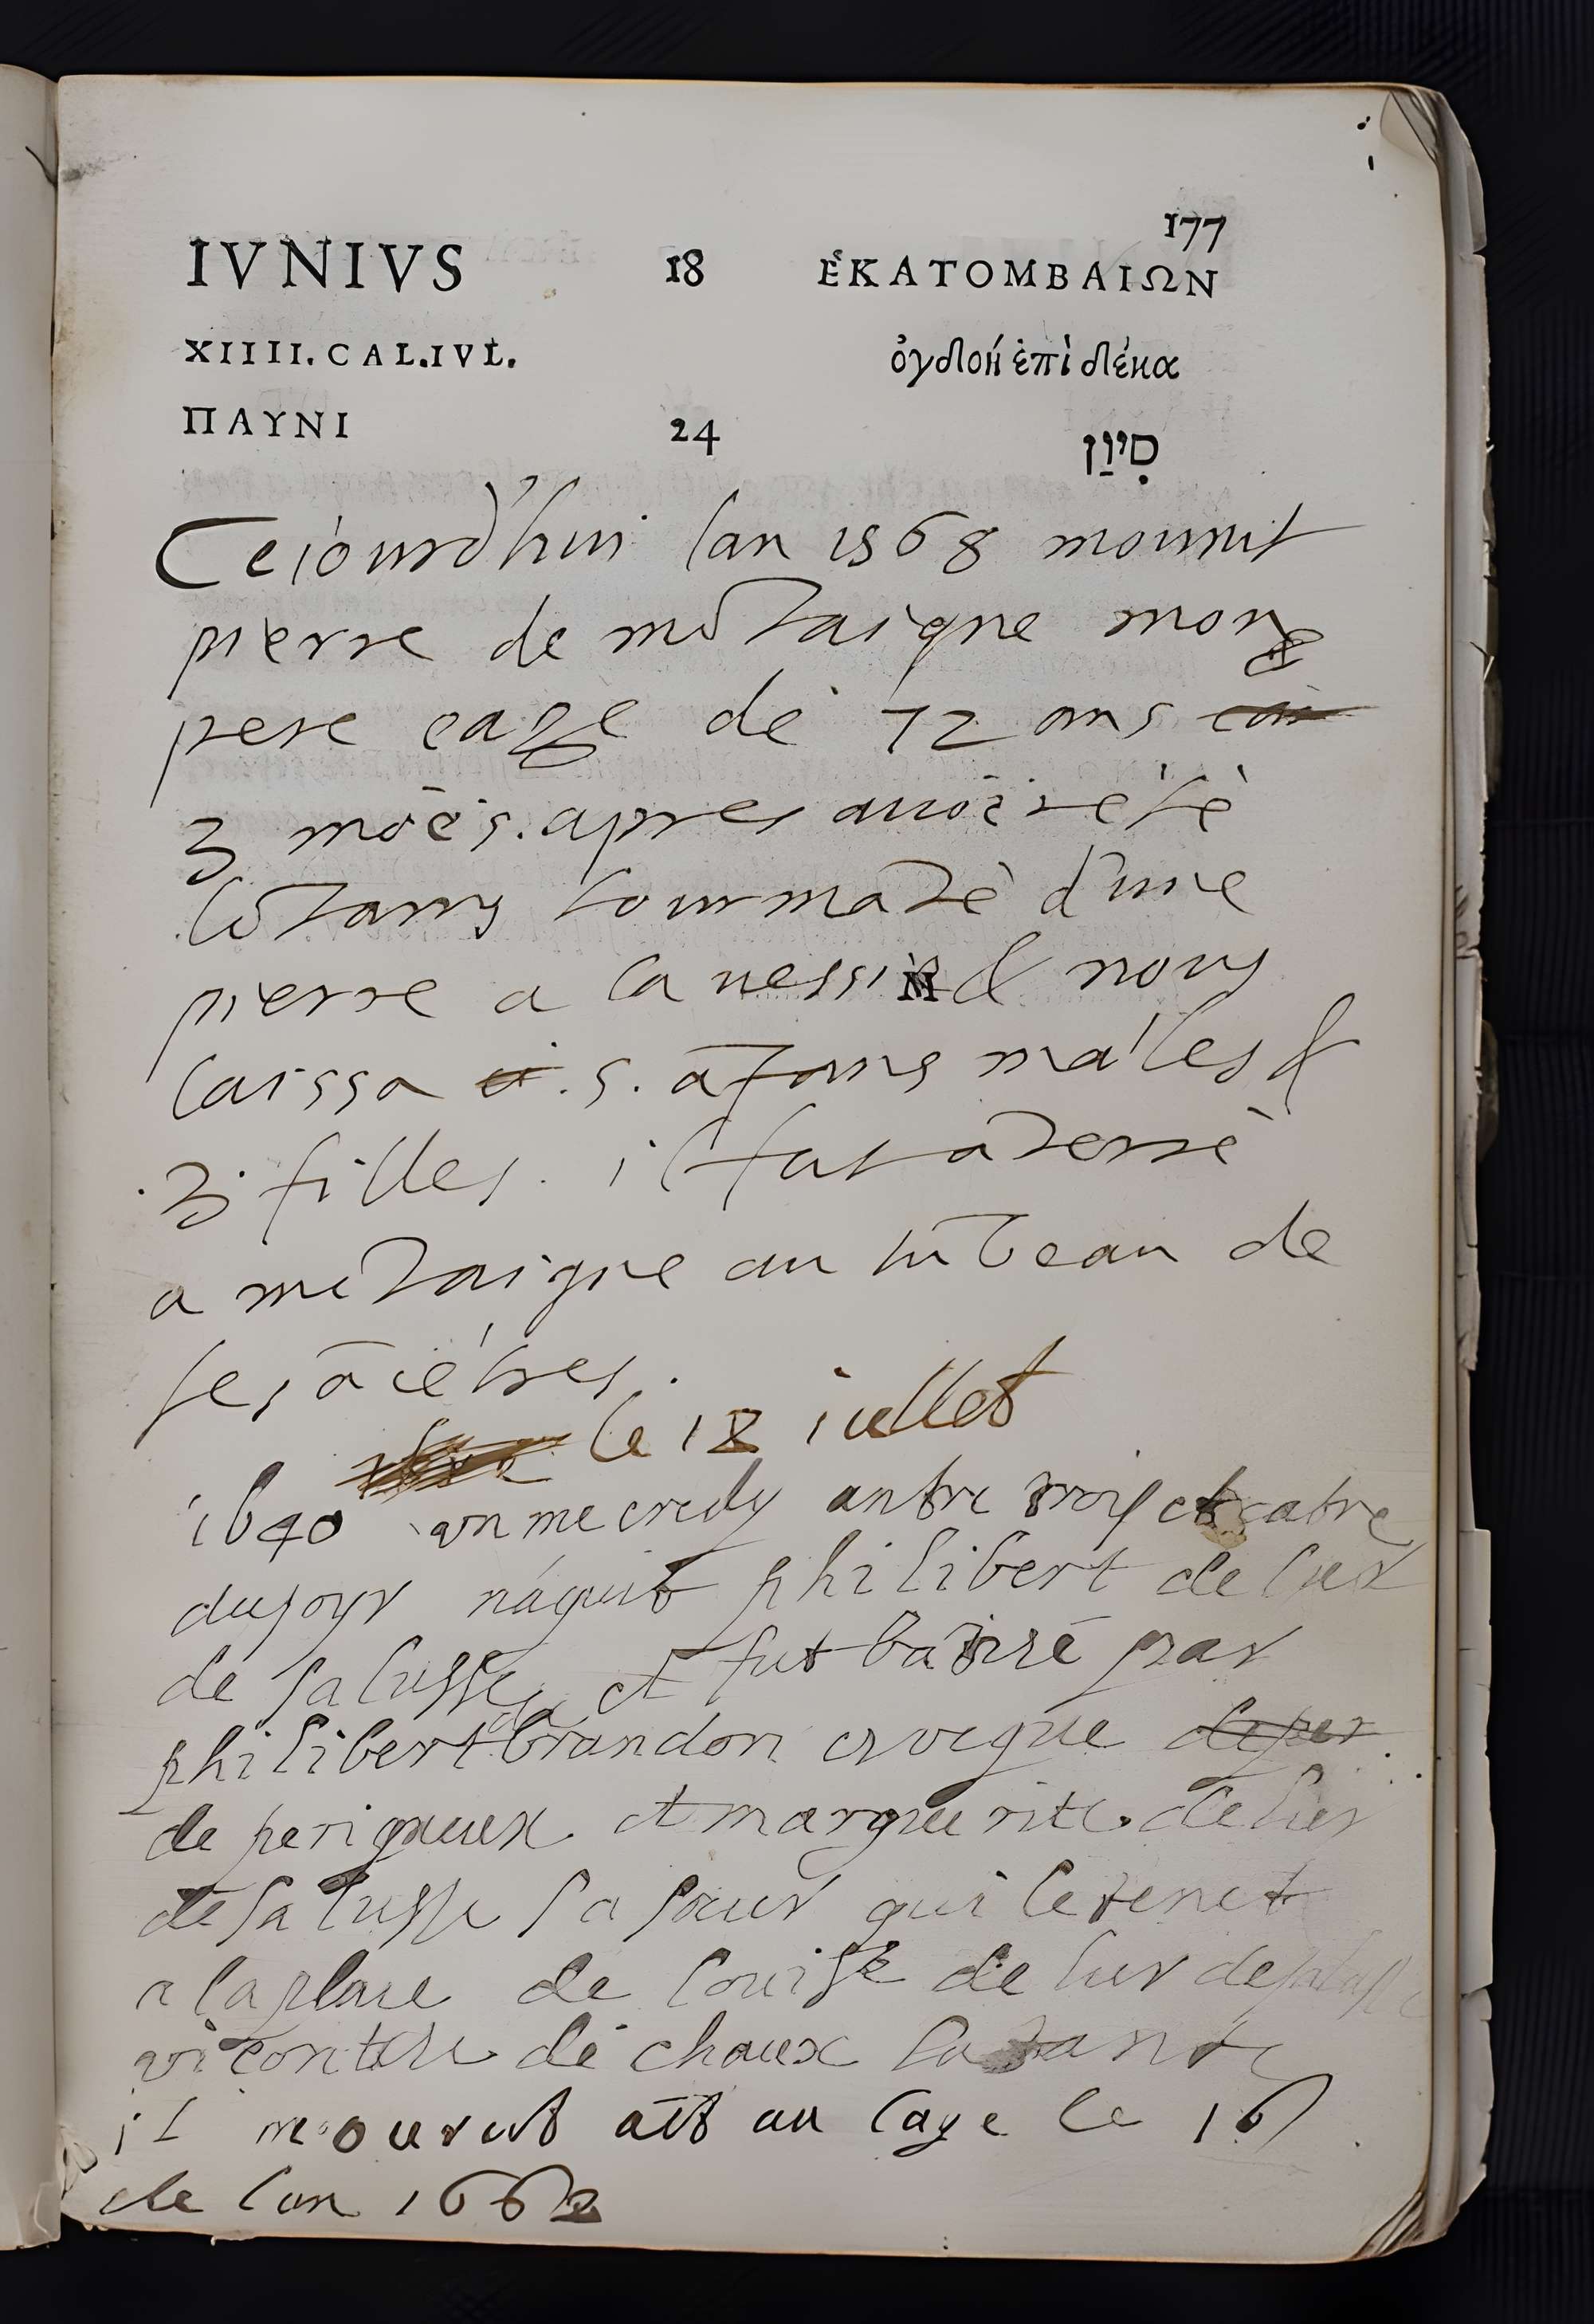 177
IVNIVS 18 ἙΚΑΤΟΜΒΑΙΩΝ
XIIII. CAL. IVL. ὀγδοή ἐπὶ δέκα
ΠΑΥΝΙ 24 סִיוָן
Ceiourd'hui lan 1568 mourut
pierre de mōtaigne mon
pere eage de 72 ans
3 mois. apres auoir été
lōtamps tourmāté d'une
pierre a la uessie & nous
laissa .5. āfans mâles &
3 filles. il fut āterré
a mōtaigne au tūbeau de
ses ācêtres.
le 18 iullet
1640 un mecredy antre troys et catre
du jour náquit philibert de lur
de salusse et fut batisé par
philibert de brandon eveque de per
de perigueux et marguerite de lur
de salusse sa sœur qui le tenet
a la place de louise de lur de salusse
vicontesse de chaux sa tante
il mourut
de lan 1662